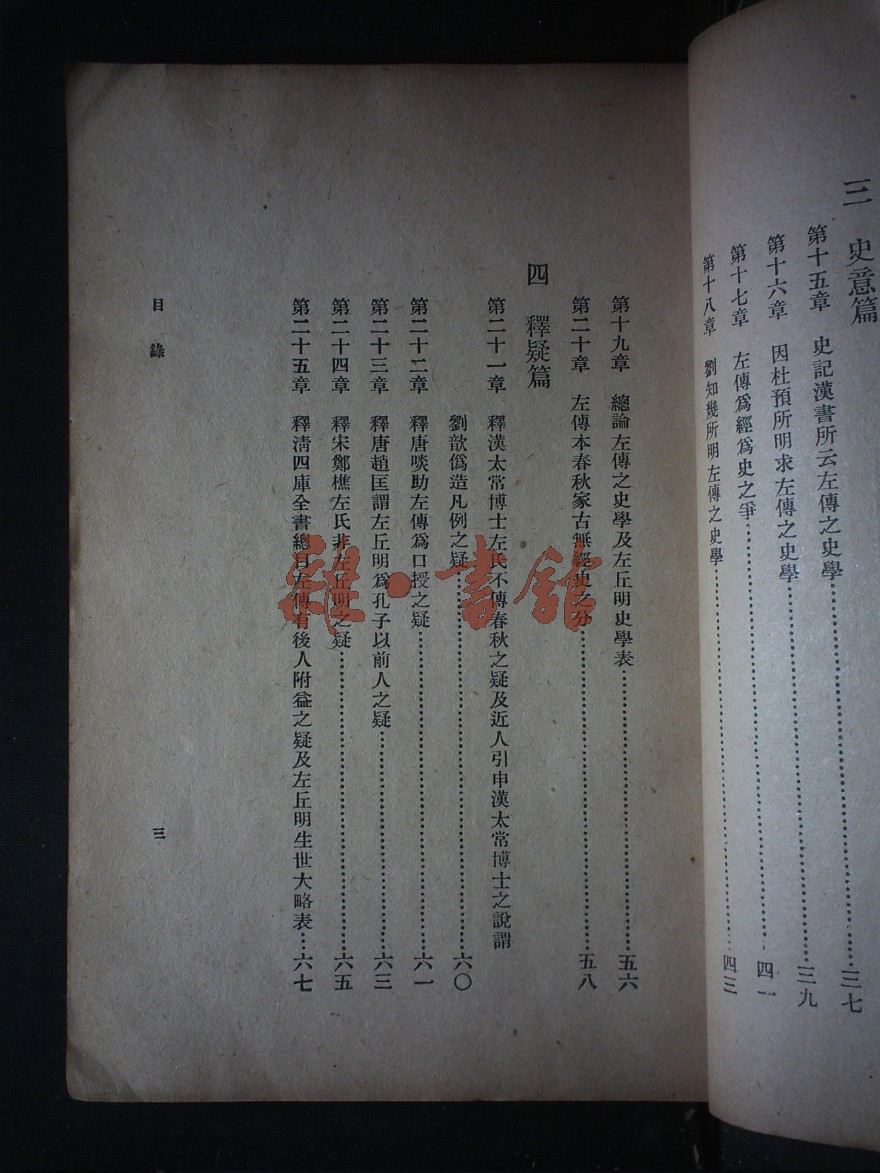 三　史意篇
第十五章　史記漢書所云左傳之史學……三七
第十六章　因杜預所明求左傳之史學……三九
第十七章　左傳爲經爲史之爭……四一
第十八章　劉知幾所明左傳之史學……四三
第十九章　總論左傳之史學及左丘明史學表……五六
第二十章　左傳本春秋家古無經史之分……五八
四　釋疑篇
第二十一章　釋漢太常博士左氏不傳春秋之疑及近人引申漢太常博士之說謂
劉歆僞造凡例之疑……六〇
第二十二章　釋唐啖助左傳爲口授之疑……六一
第二十三章　釋唐趙匡謂左丘明爲孔子以前人之疑……六三
第二十四章　釋宋鄭樵左氏非左丘明之疑……六五
第二十五章　釋清四庫全書總目左傳有後人附益之疑及左丘明生世大略表……六七
目錄
三
雜·書館